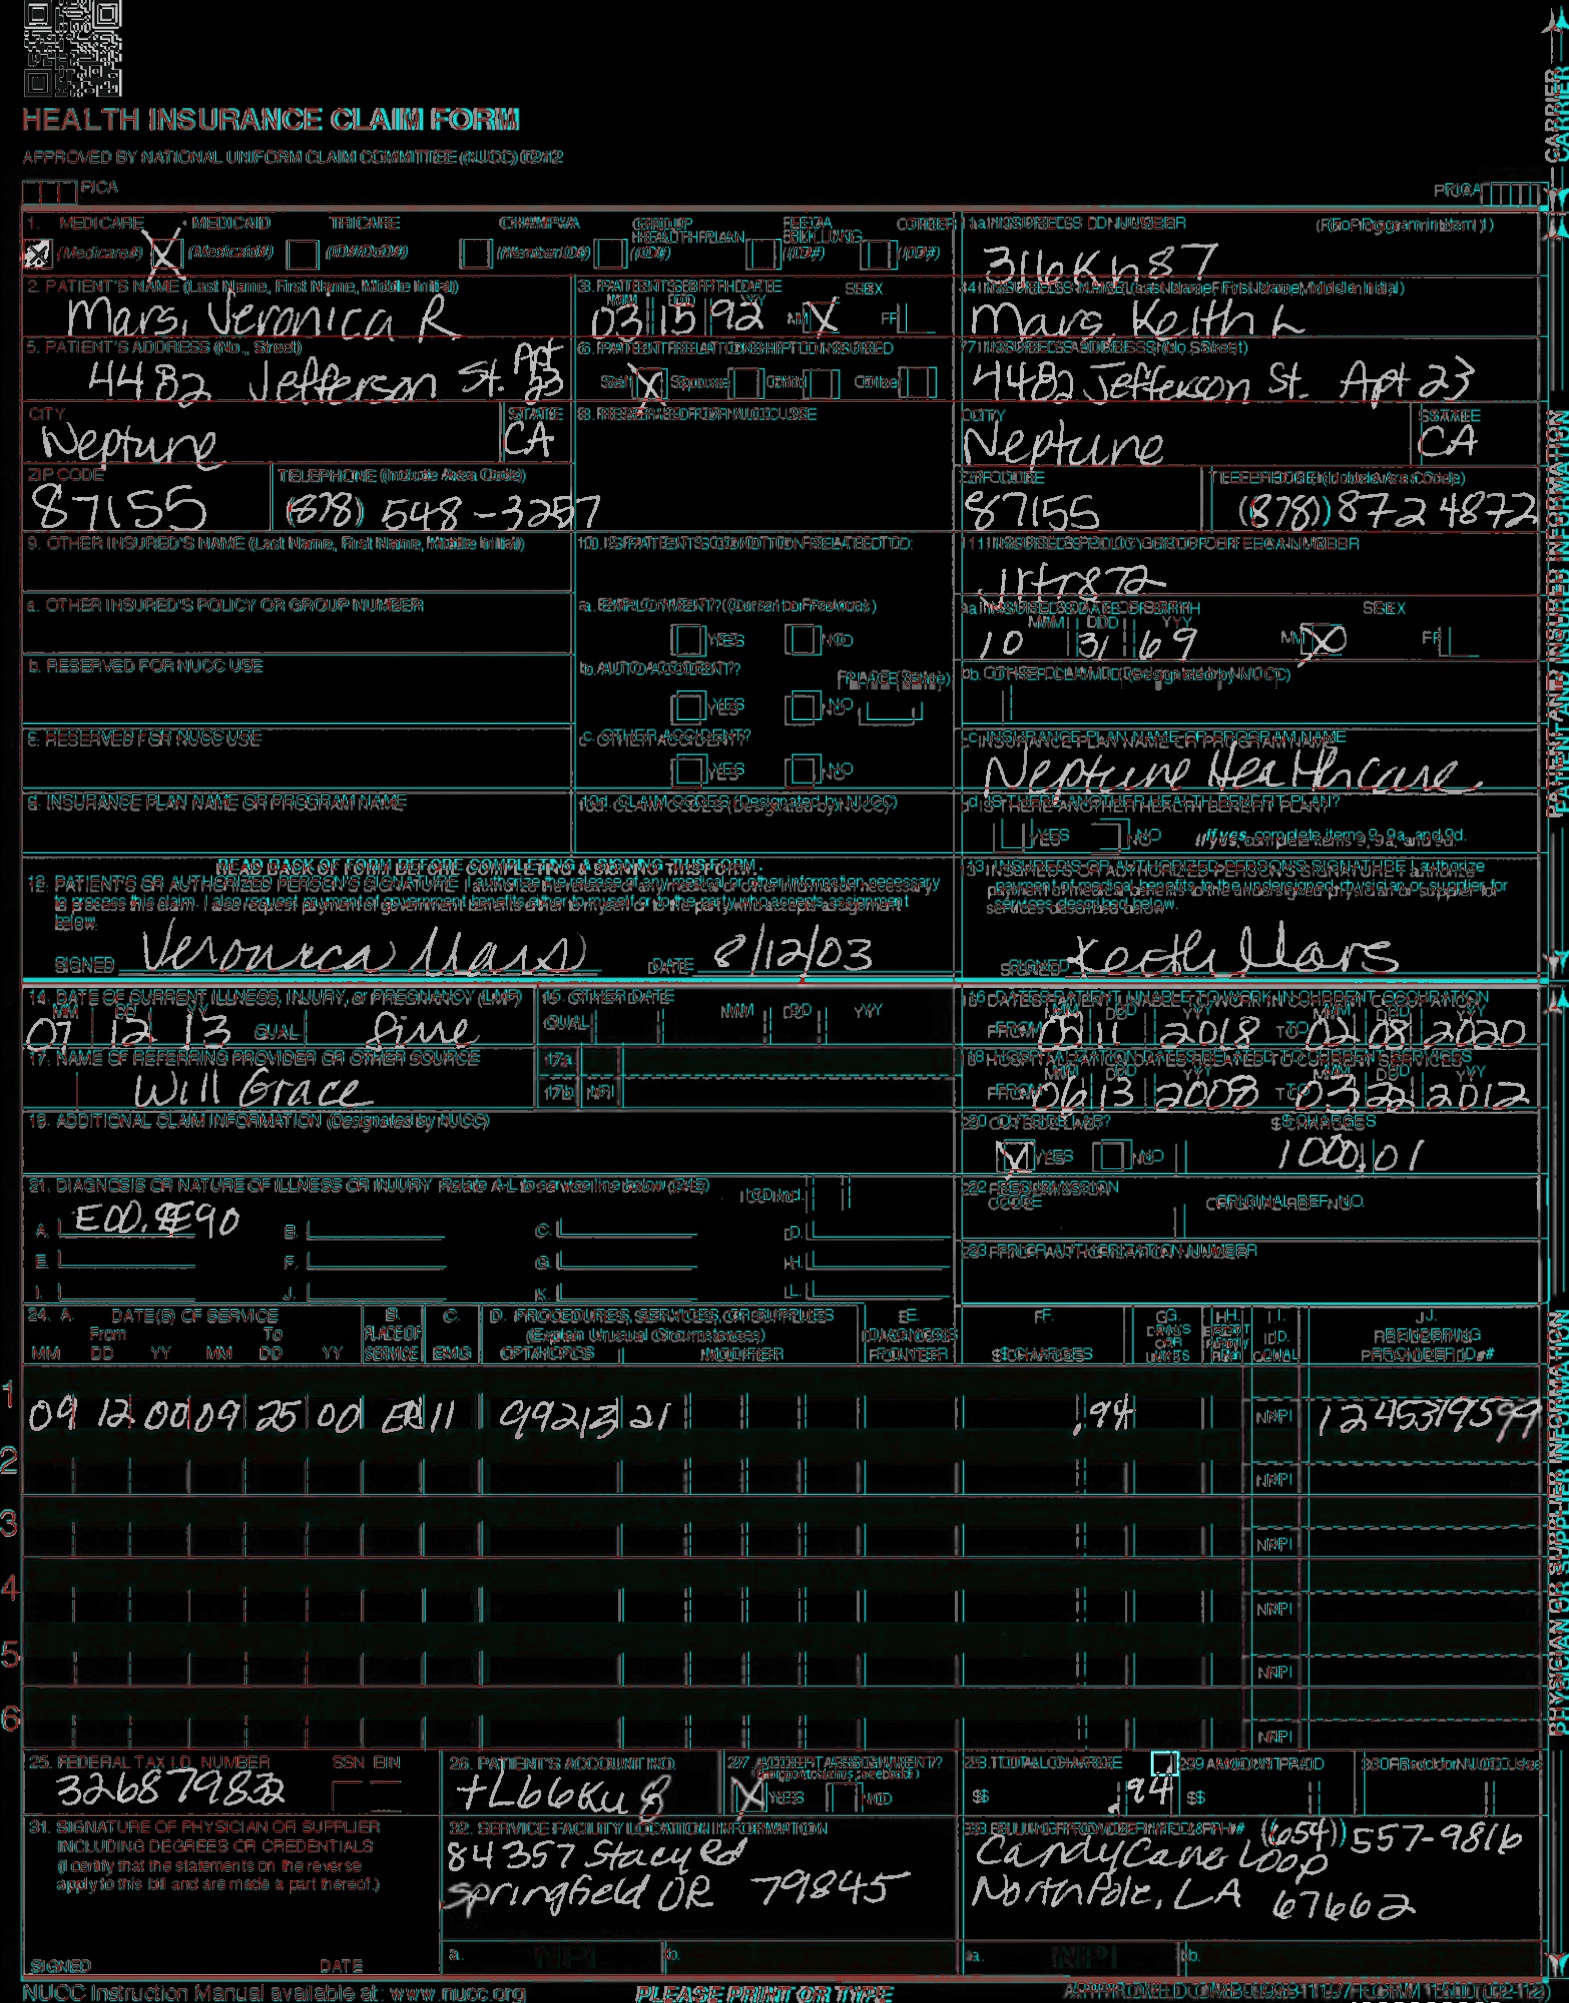 HEALTH INSURANCE CLAIM FORM
APPROVED BY NATIONAL UNIFORM CLAIM COMMITTEE (NUCC) 02/12
PICA PICA
CARRIER
1. MEDICARE MEDICAID TRICARE CHAMPVA GROUP HEALTH PLAN FECA BLK LUNG OTHER
(Medicare#) X (Medicaid#) (ID#/DoD#) (Member ID#) (ID#) (ID#) (ID#)
1a. INSURED'S I.D. NUMBER (For Program in Item 1)
316Kh87
2. PATIENT'S NAME (Last Name, First Name, Middle Initial)
Mars, Veronica R
3. PATIENT'S BIRTH DATE SEX
MM DD YY
03 15 92 M X F
4. INSURED'S NAME (Last Name, First Name, Middle Initial)
Mars, Keith L
5. PATIENT'S ADDRESS (No., Street)
4482 Jefferson St. Apt 23
6. PATIENT RELATIONSHIP TO INSURED
Self X Spouse Child Other
7. INSURED'S ADDRESS (No., Street)
4482 Jefferson St. Apt 23
CITY STATE
Neptune CA
8. RESERVED FOR NUCC USE
CITY STATE
Neptune CA
ZIP CODE TELEPHONE (Include Area Code)
87155 (878) 548-3257
ZIP CODE TELEPHONE (Include Area Code)
87155 (878) 872 4872
9. OTHER INSURED'S NAME (Last Name, First Name, Middle Initial)
10. IS PATIENT'S CONDITION RELATED TO:
11. INSURED'S POLICY GROUP OR FECA NUMBER
a. OTHER INSURED'S POLICY OR GROUP NUMBER
a. EMPLOYMENT? (Current or Previous)
YES NO
a. INSURED'S DATE OF BIRTH SEX
MM DD YY
10 31 69 M X F
b. RESERVED FOR NUCC USE
b. AUTO ACCIDENT? PLACE (State)
YES NO
b. OTHER CLAIM ID (Designated by NUCC)
c. RESERVED FOR NUCC USE
c. OTHER ACCIDENT?
YES NO
c. INSURANCE PLAN NAME OR PROGRAM NAME
Neptune Healthcare
d. INSURANCE PLAN NAME OR PROGRAM NAME
10d. CLAIM CODES (Designated by NUCC)
d. IS THERE ANOTHER HEALTH BENEFIT PLAN?
YES NO If yes, complete items 9, 9a, and 9d.
READ BACK OF FORM BEFORE COMPLETING & SIGNING THIS FORM.
12. PATIENT'S OR AUTHORIZED PERSON'S SIGNATURE I authorize the release of any medical or other information necessary
to process this claim. I also request payment of government benefits either to myself or to the party who accepts assignment
below.
SIGNED Veronica Mars DATE 8/12/03
13. INSURED'S OR AUTHORIZED PERSON'S SIGNATURE I authorize
payment of medical benefits to the undersigned physician or supplier for
services described below.
SIGNED Keith Mars
PATIENT AND INSURED INFORMATION
14. DATE OF CURRENT ILLNESS, INJURY, or PREGNANCY (LMP)
MM DD YY
07 12 13 QUAL.
15. OTHER DATE
QUAL. MM DD YY
16. DATES PATIENT UNABLE TO WORK IN CURRENT OCCUPATION
MM DD YY MM DD YY
FROM 11 2018 TO 02 08 2020
17. NAME OF REFERRING PROVIDER OR OTHER SOURCE
Will Grace
17a.
17b. NPI
18. HOSPITALIZATION DATES RELATED TO CURRENT SERVICES
MM DD YY MM DD YY
FROM 06 13 2008 TO 03 22 2012
19. ADDITIONAL CLAIM INFORMATION (Designated by NUCC)
20. OUTSIDE LAB? $ CHARGES
YES NO 1000 01
21. DIAGNOSIS OR NATURE OF ILLNESS OR INJURY Relate A-L to service line below (24E) ICD Ind.
A. B. C. D.
E. F. G. H.
I. J. K. L.
22. RESUBMISSION CODE ORIGINAL REF. NO.
23. PRIOR AUTHORIZATION NUMBER
24. A. DATE(S) OF SERVICE B. C. D. PROCEDURES, SERVICES, OR SUPPLIES E. F. G. H. I. J.
From To PLACE OF SERVICE EMG (Explain Unusual Circumstances) DIAGNOSIS POINTER $ CHARGES DAYS OR UNITS EPSDT Family Plan ID. QUAL. RENDERING PROVIDER ID. #
MM DD YY MM DD YY CPT/HCPCS MODIFIER
1 09 12 00 09 25 00 ER 11 99213 21 .94 NPI 1245319599
2 NPI
3 NPI
4 NPI
5 NPI
6 NPI
PHYSICIAN OR SUPPLIER INFORMATION
25. FEDERAL TAX I.D. NUMBER SSN EIN
26. PATIENT'S ACCOUNT NO.
27. ACCEPT ASSIGNMENT?
(For govt. claims, see back)
X YES NO
28. TOTAL CHARGE
$ .94
29. AMOUNT PAID
$
30. Rsvd for NUCC Use
31. SIGNATURE OF PHYSICIAN OR SUPPLIER
INCLUDING DEGREES OR CREDENTIALS
(I certify that the statements on the reverse
apply to this bill and are made a part thereof.)
SIGNED DATE
32. SERVICE FACILITY LOCATION INFORMATION
84357 Stacy Rd
Springfield OR 79845
a. NPI b.
33. BILLING PROVIDER INFO & PH # (654) 557-9816
Candy Cane Loop
North Pole, LA 67662
a. NPI b.
NUCC Instruction Manual available at: www.nucc.org
PLEASE PRINT OR TYPE